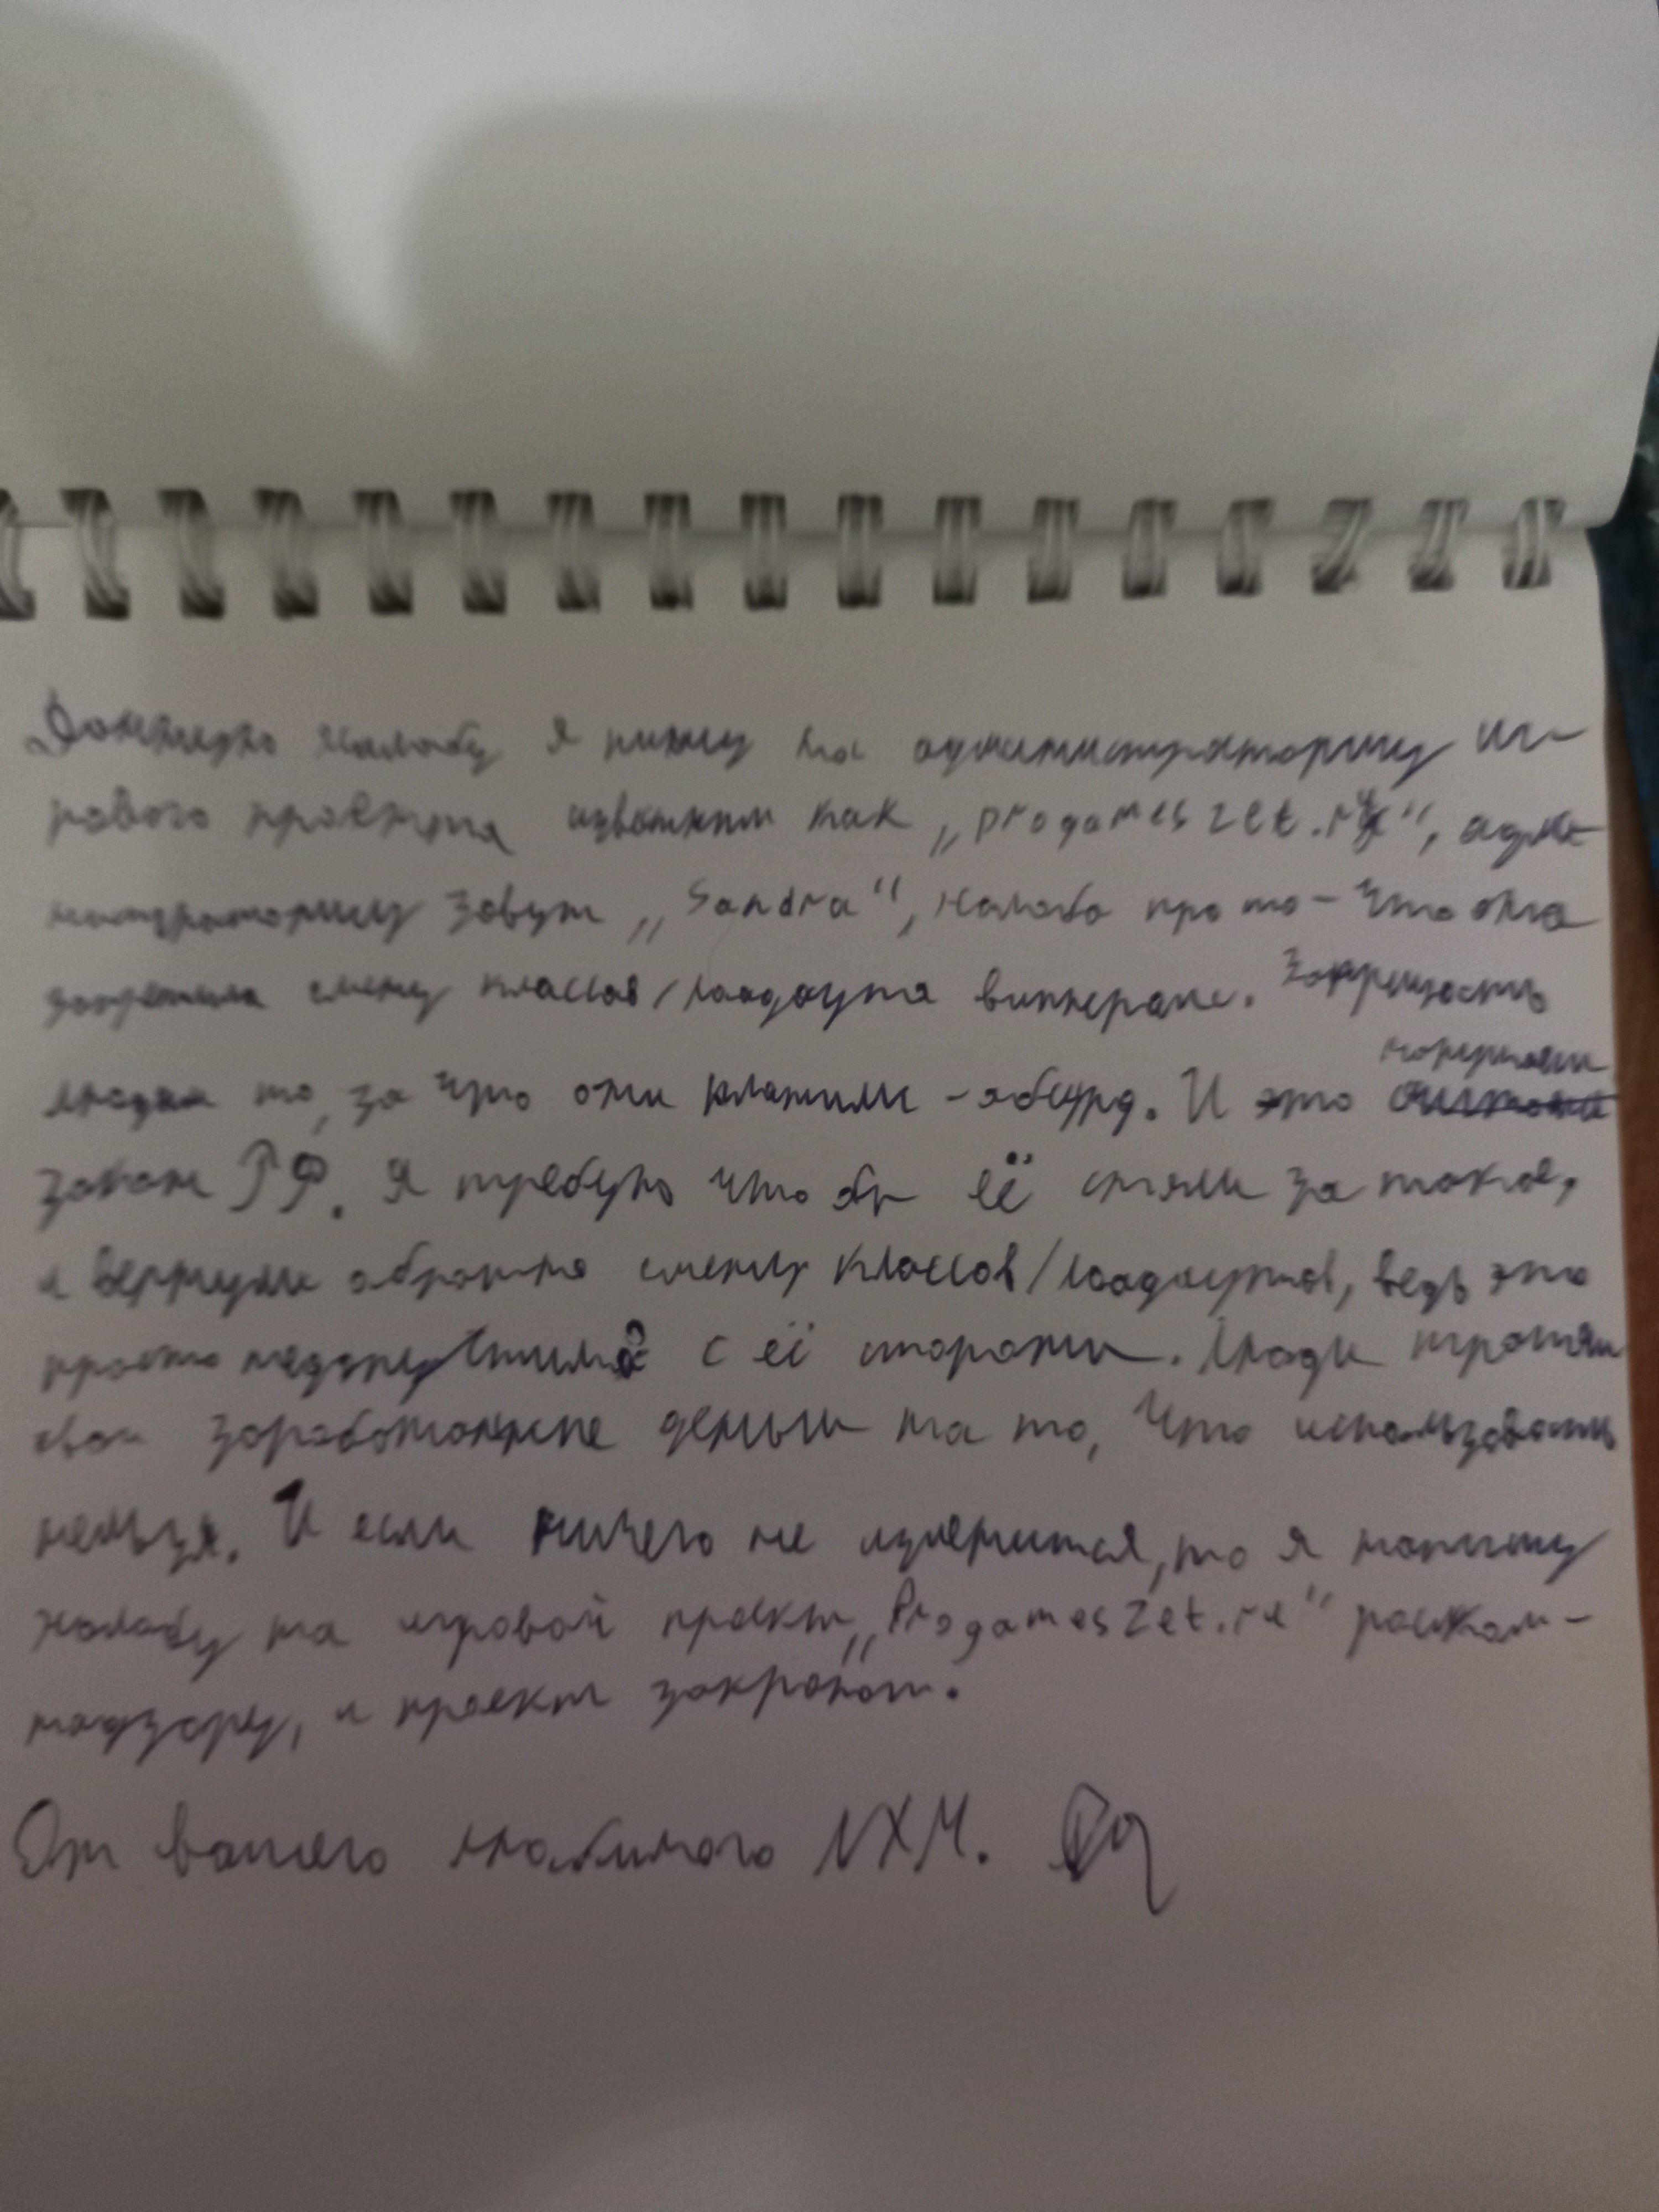 Данную жалобу я пишу на администраторшу иг-
рового проекта известном как „progameszet.ru“, адми-
нистраторшу зовут „Sandra“, жалоба про то - что она
запретила смену классов/лоадаута виннерам. Запрещать
людям то, за что они платили - абсурд. И это нарушает
закон РФ. Я требую что бы её сняли за такое,
и вернули обратно смену классов/лоадаутов, ведь это
просто недопустимо с её стороны. Люди тратят
свои заработанные деньги на то, что использовать
нельзя. И если ничего не изменится, то я напишу
жалобу на игровой проект „ProgamesZet.ru“ роском-
надзору, и проект закроют.
От вашего любимого NXM.